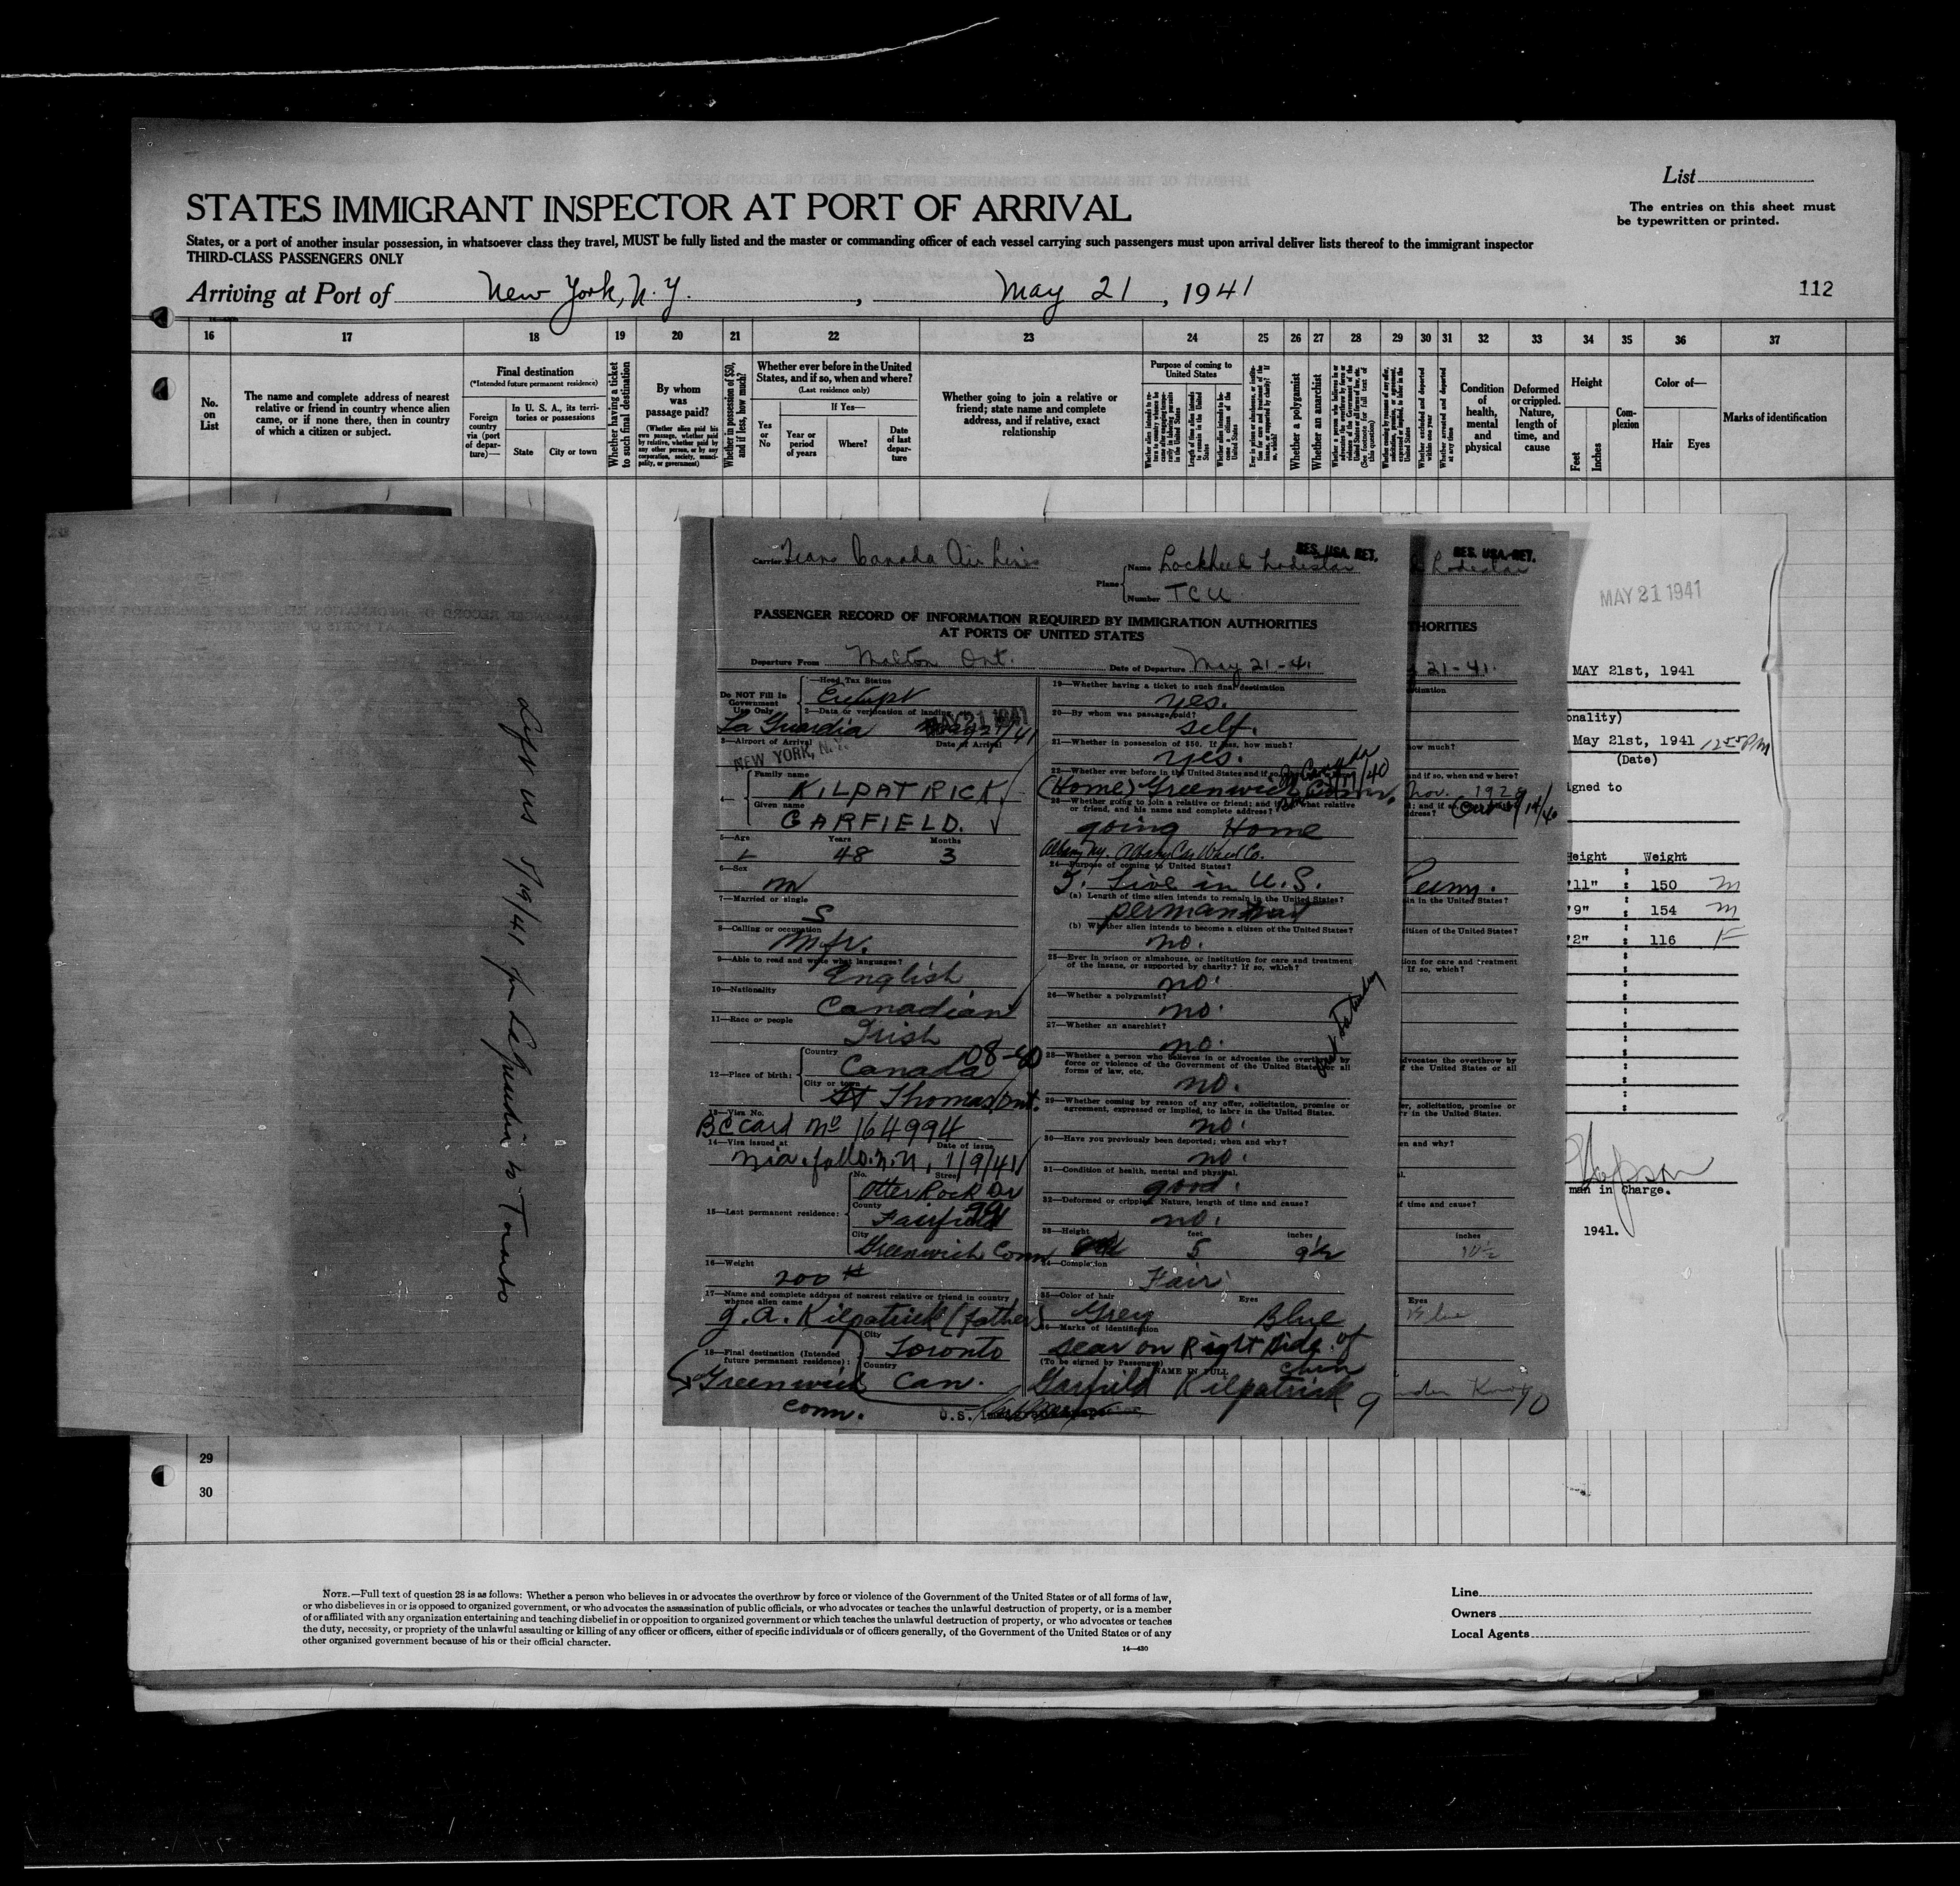 List
STATES IMMIGRANT INSPECTOR AT PORT OF ARRIVAL
The entries on this sheet must
be typewritten or printed.
States, or a port of another insular possession, in whatsoever class they travel, MUST be fully listed and the master or commanding officer of each vessel carrying such passengers must upon arrival deliver lists thereof to the immigrant inspector
THIRD-CLASS PASSENGERS ONLY
Arriving at Port of New York, N.Y. , May 21 , 1941
112
16 17 18 19 20 21 22 23 24 25 26 27 28 29 30 31 32 33 34 35 36 37
No. on List
The name and complete address of nearest
relative or friend in country whence alien
came, or if none there, then in country
of which a citizen or subject.
Final destination
(*Intended future permanent residence)
Foreign country via (port of departure)—
In U. S. A., its territories or possessions
State
City or town
Whether having a ticket to such final destination
By whom was passage paid?
(Whether alien paid his own passage, whether paid by relative, whether paid by any other person, or by any corporation, society, municipality, or government)
Whether in possession of $50, and if less, how much?
Whether ever before in the United
States, and if so, when and where?
(Last residence only)
Yes or No
If Yes—
Year or period of years
Where?
Date of last departure
Whether going to join a relative or
friend; state name and complete
address, and if relative, exact
relationship
Purpose of coming to United States
Whether a polygamist
Whether an anarchist
Condition of health, mental and physical
Deformed or crippled. Nature, length of time, and cause
Height
Feet
Inches
Complexion
Color of—
Hair
Eyes
Marks of identification
Left US 5/19/41 for LaGuardia to Toronto
Carrier Trans Canada Air Lines
RES. USA. RET.
Plane
Name Lockheed Lodestar
Number TCU
PASSENGER RECORD OF INFORMATION REQUIRED BY IMMIGRATION AUTHORITIES
AT PORTS OF UNITED STATES
Departure From Malton Ont. Date of Departure May 21-41
Do NOT Fill In
Government
Use Only
1—Head Tax Status
Exempt
2—Data or verification of landing
La Guardia MAY 21 1941
3—Airport of Arrival Date of Arrival
NEW YORK, N.Y.
4—
Family name
KILPATRICK
Given name
GARFIELD.
5—Age Years Months
48 3
6—Sex
M
7—Married or single
S
8—Calling or occupation
Mfr.
9—Able to read and write what languages?
English
10—Nationality
Canadian
11—Race or people
Irish
12—Place of birth:
Country
Canada 08-60
City or town
St Thomas, Ont.
13—Visa No.
BC card No 164994
14—Visa issued at Date of issue
Nia. falls. N.Y., 1/9/41
15—Last permanent residence:
No. Street
Otter Rock Dr
County
Fairfield 99
City
Greenwich Conn
16—Weight
200 #
17—Name and complete address of nearest relative or friend in country
whence alien came
G. A. Kilpatrick (father)
City
Toronto
18—Final destination (Intended
future permanent residence):
Country
Can.
Greenwich
Conn.
19—Whether having a ticket to such final destination
yes.
20—By whom was passage paid?
self.
21—Whether in possession of $50. If less, how much?
yes.
22—Whether ever before in the United States and if so,
(Home) Greenwich Conn.
23—Whether going to join a relative or friend; and if so, what relative
or friend, and his name and complete address?
going Home
Albany N.Y. Albany Car Wheel Co.
24—Purpose of coming to United States?
Live in U.S.
(a) Length of time alien intends to remain in the United States?
permanent
(b) Whether alien intends to become a citizen of the United States?
no.
25—Ever in prison or almshouse, or institution for care and treatment
of the insane, or supported by charity? If so, which?
no.
26—Whether a polygamist?
no.
27—Whether an anarchist?
no.
28—Whether a person who believes in or advocates the overthrow by
force or violence of the Government of the United States or all
forms of law, etc.
no.
29—Whether coming by reason of any offer, solicitation, promise or
agreement, expressed or implied, to labor in the United States.
no.
30—Have you previously been deported; when and why?
no.
31—Condition of health, mental and physical.
good.
32—Deformed or crippled. Nature, length of time and cause?
no.
33—Height feet inches
5 9½
34—Complexion
Fair
35—Color of hair Eyes
Grey Blue
36—Marks of identification
scar on Right side of
chin
(To be signed by Passenger)
NAME IN FULL
Garfield Kilpatrick
9
RES. USA. RET.
Lodestar
THORITIES
21-41.
tination
how much?
and if so, when and where?
Nov. 192
dress?
Perm.
in in the United States?
itizen of the United States?
ion for care and treatment
If so, which?
dvocates the overthrow by
f the United States or all
er, solicitation, promise or
r in the United States.
en and why?
al.
f time and cause?
inches
10½
Eyes
Blue
10
MAY 21 1941
MAY 21st, 1941
onality)
May 21st, 1941 12 55 PM
(Date)
igned to
Height Weight
'11" : 150 M
'9" : 154 M
'2" : 116 F
man in Charge.
1941.
29
30
NOTE.—Full text of question 28 is as follows: Whether a person who believes in or advocates the overthrow by force or violence of the Government of the United States or of all forms of law,
or who disbelieves in or is opposed to organized government, or who advocates the assassination of public officials, or who advocates or teaches the unlawful destruction of property, or is a member
of or affiliated with any organization entertaining and teaching disbelief in or opposition to organized government or which teaches the unlawful destruction of property, or who advocates or teaches
the duty, necessity, or propriety of the unlawful assaulting or killing of any officer or officers, either of specific individuals or of officers generally, of the Government of the United States or of any
other organized government because of his or their official character.
14—430
Line
Owners
Local Agents